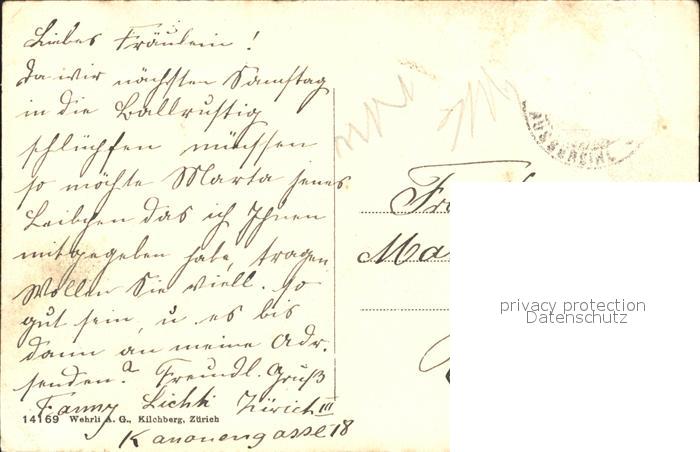 Liebes Fräulein!
Da wir nächsten Samstag
in die Ballrustig
schlüpfen müssen
so möchte Marta jenes
Leibchen das ich Ihnen
mitgegeben habe, tragen
Wollen Sie viell. so
gut sein, u. es bis
dann an meine Adr.
senden? Freundl. Gruß
Fanny Lichti Zürich III
Kanonengasse 18
14169 Wehrli A. G., Kilchberg, Zürich
AUSSERSIHL
privacy protection
Datenschutz